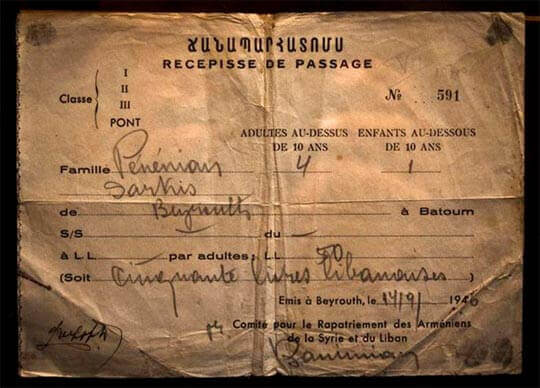 ՃԱՆԱՊԱՐՀԱՏՈՄՍ
RECEPISSE DE PASSAGE
I
II
III
PONT
Classe
№ 591
ADULTES AU-DESSUS DE 10 ANS
ENFANTS AU-DESSOUS DE 10 ANS
Famille Pénénian 4 1
Sarkis
de Beyrouth à Batoum
S/S — du —
à L.L. par adultes; LL 50
(Soit Cinquante livres libanaises)
Emis à Beyrouth, le 14/9/ 1946
Comité pour le Rapatriement des Arméniens
de la Syrie et du Liban